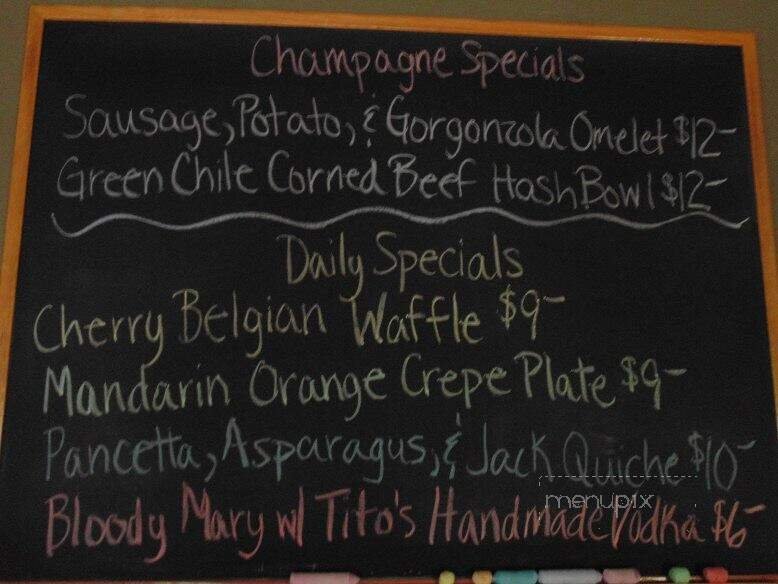 Champagne Specials
Sausage, Potato, & Gorgonzola Omelet $12-
Green Chile Corned Beef Hash Bowl $12-
Daily Specials
Cherry Belgian Waffle $9-
Mandarin Orange Crepe Plate $9-
Pancetta, Asparagus, & Jack Quiche $10-
menupix
Bloody Mary w/ Tito's Handmade Vodka $6-